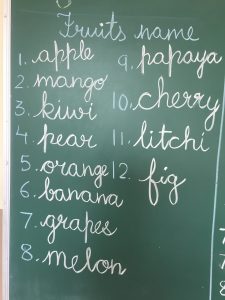 Fruits name
1. apple
2. mango
3. kiwi
4. pear
5. orange
6. banana
7. grapes
8. melon
9. papaya
10. cherry
11. litchi
12. fig